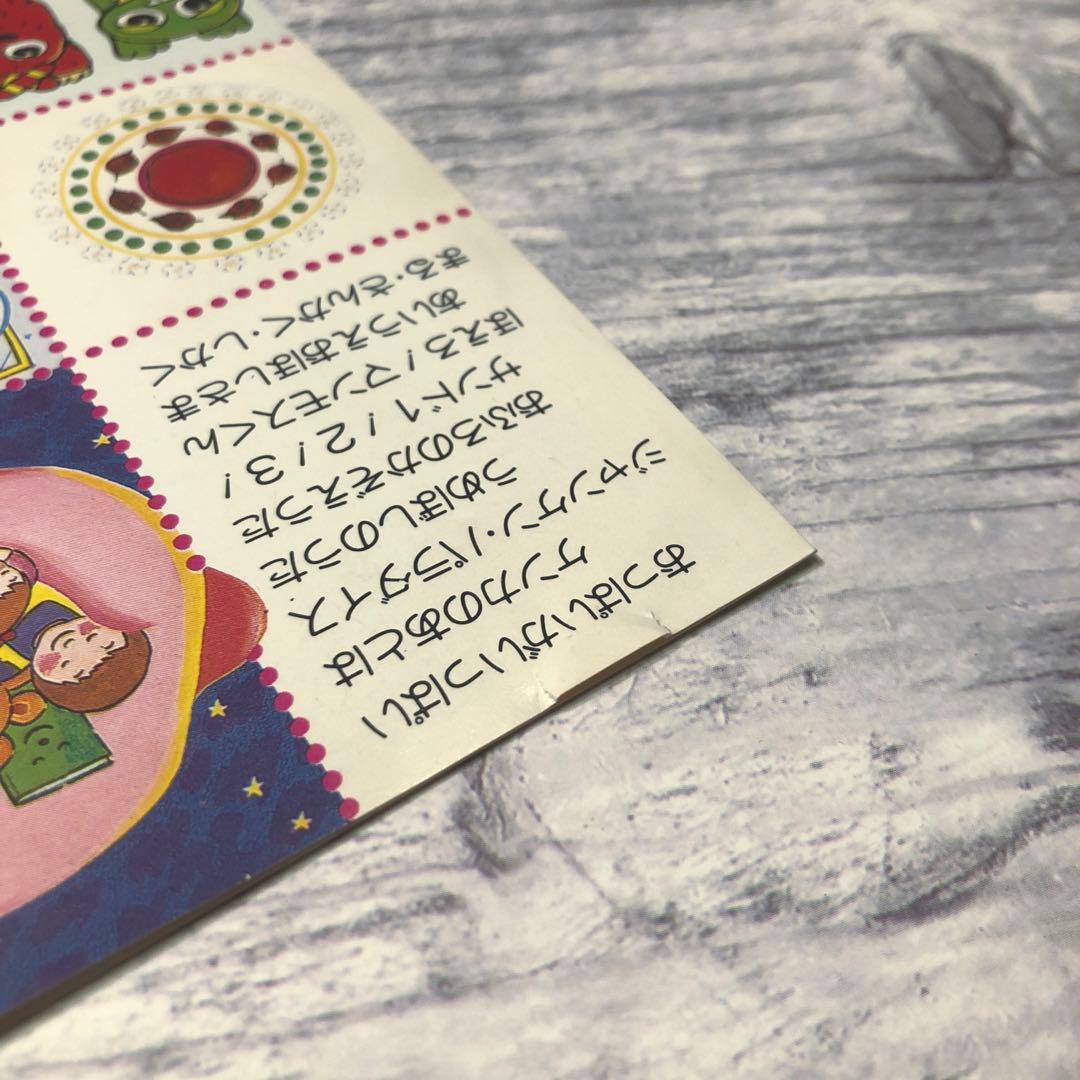 おっぱいがいっぱい
ケンカのあとは
ジャンケン・パラダイス
うめぼしのうた
おふろのかぞえうた
サンド1！2！3！
ほえろ！マンモスくん
あいうえおほしさま
まる・さんかく・しかく